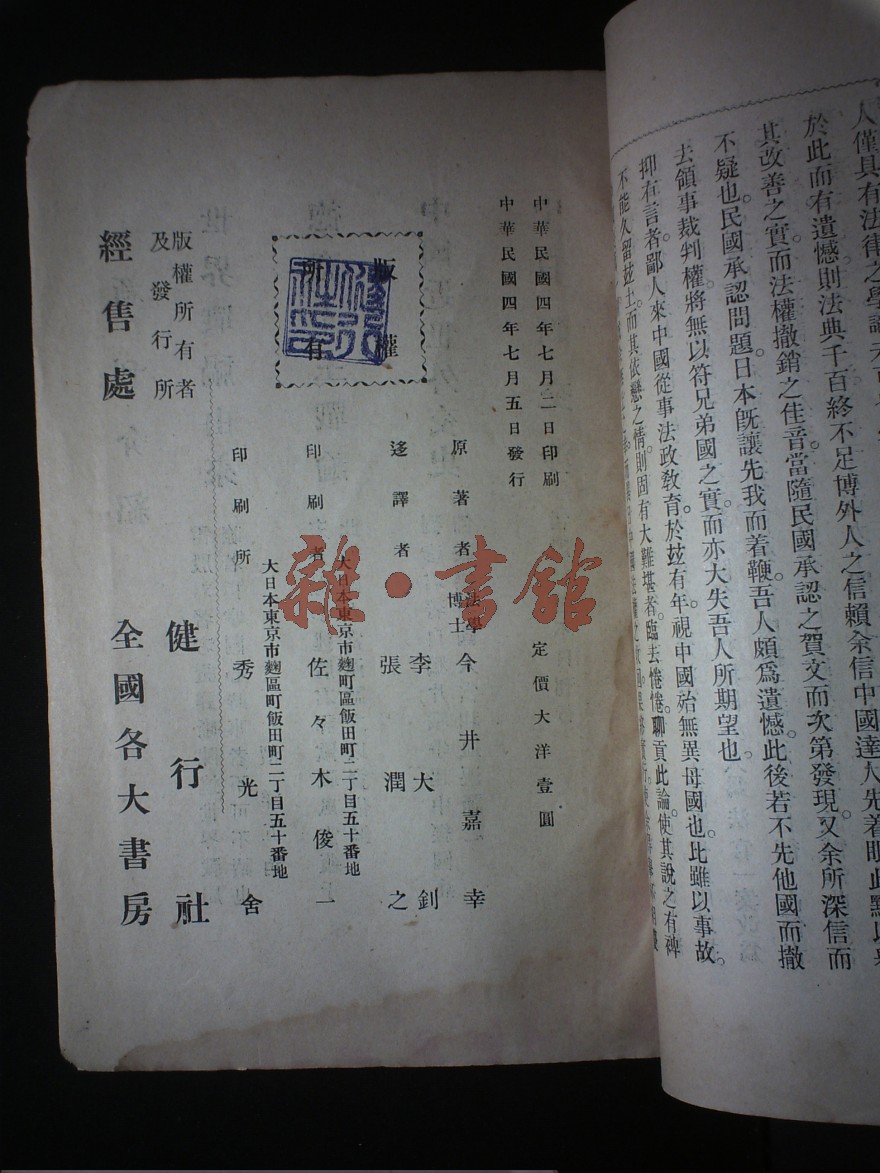 人僅具有法律之學識
於此而有遺憾則法典千百終不足博外人之信賴余信中國達人先着眼此點以
其改善之實而法權撤銷之佳音當隨民國承認之賀文而次第發現又余所深信而
不疑也民國承認問題日本旣讓先我而着鞭吾人頗爲遺憾此後若不先他國而撤
去領事裁判權將無以符兄弟國之實而亦大失吾人所期望也
抑有言者鄙人來中國從事法政教育於玆有年視中國殆無異母國也比雖以事故
不能久留玆土而其依戀之情則固有大難堪者臨去惓惓聊貢此論使其說之有裨
中華民國四年七月二日印刷
中華民國四年七月五日發行
定價大洋壹圓
原著者 法學博士 今井嘉幸
迻譯者 李大釗
張潤之
大日本東京市麴町區飯田町二丁目五十番地
印刷者 佐々木俊一
大日本東京市麴區町飯田町二丁目五十番地
印刷所 秀光舍
版權
所有
健行社印
版權所有者
及發行所
健行社
經售處
全國各大書房
雜·書館